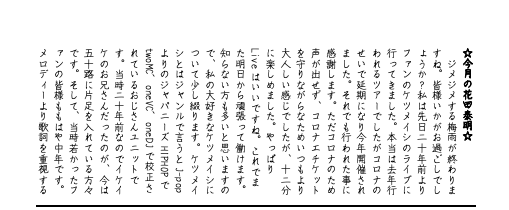 ☆今月の花四泰明☆
ジメジメする梅雨が終わりま
すね。皆様いかがお過ごしでし
ょうか?私は先日二十年前より
ファンのケツメイシのライブに
行ってきました。本当は去年行
われるツアーでしたがコロナの
せいで延期になり今年開催され
ました。それでも行われた事に
感謝します。ただコロナのため
声が出せず、コロナエチケット
を守りながらなためいつもより
大人しい感じでしたが、十二分
に楽しめました。やっぱり
Liveはいいですね。これでま
た明日から頑張って働けます。
知らない方も多いと思いますの
で、私の大好きなケツメイシに
ついて少し綴ります。ケツメイ
シとはジャンルで言うとJ-pop
よりのジャパニーズHIPHOPで
twoMC、oneVC、oneDJで校正さ
れているおじさんユニットで
す。当時二十年前なのでイケイ
ケのお兄さんだったのが、今は
五十路に片足を入れている方々
です。そして、当時若かったフ
ァンの皆様ももはや中年です。
メロディーより歌詞を重視する